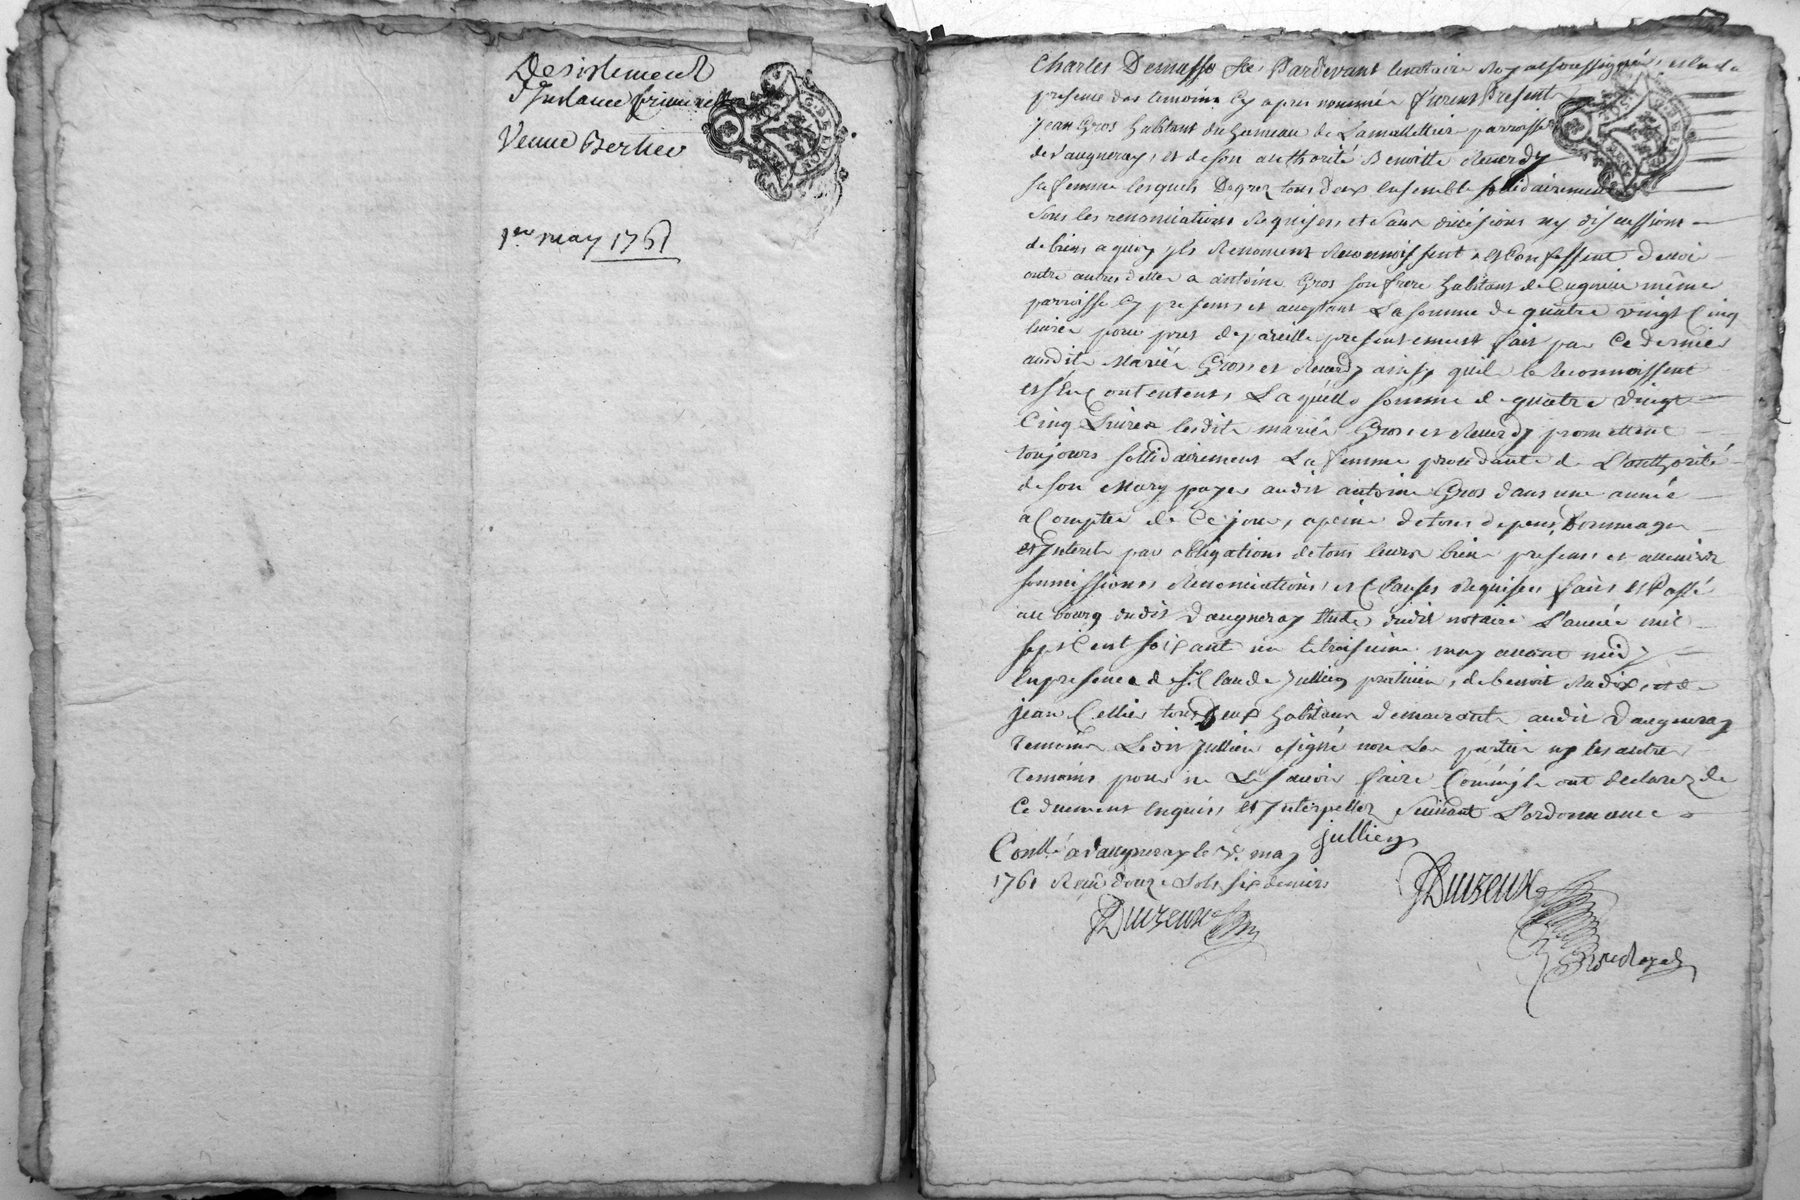 Desistement
d'Instance criminelle
Veuve Bertier
1er may 1761
Charles Demasso &c Pardevant le notaire Royal soussigné, et en la
presence des temoins cy apres nommés furent Present
Jean Gros habitant du hameau de Lamallettier parroisse
de vaugneray, et de son authorité Benoitte Reverdy
sa femme lesquels Degrez tous deux ensemble solidairement
sous les renonciations Requises, et sans divisions ny discussions
de biens a quoy ils Renoncent Reconnoissent et Confessent devoir
outre autres dettes a antoine Gros son frere habitant de même
parroisse cy present et acceptant La somme de quatre vingt Cinq
livres pour prest de pareille presentement fait par Ce dernier
audits Mariés Gros et Reverdy ainsy quils le Reconnoissent
et s'En Contentent, Laquelle somme de quatre vingt
Cinq Livres lesdits mariés Gros et Reverdy promettent
toujours sollidairement La femme procedante de L'authorité
de son Mary payer audit antoine Gros dans une année
a Compter de Ce jour, a peine de tous depens, Dommages
et Interets par obligations de tous leurs biens presens et avenirs
soumissions, Renonciations, et Clauses Requises, fait et Passé
au bourg dudit vaugneray Etude dudit notaire L'année mil
sept Cent soixante un le troisieme may avant midy
En presence de Sr Claude Jullien praticien, de benoit Radix, et de
jean Cellier tous deux habitans demeurants audit vaugneray
Temoins Ledit Jullien a signé non Les parties ny les autres
Temoins pour ne Le savoir faire Comme ils ont declarez de
Ce duement enquis, et Interpellez suivant L'ordonnance
Jullien
Conllé a vaugneray le may
1761 Reçu douze sols six deniers
Duizeux
Duizeux
Nre Royal